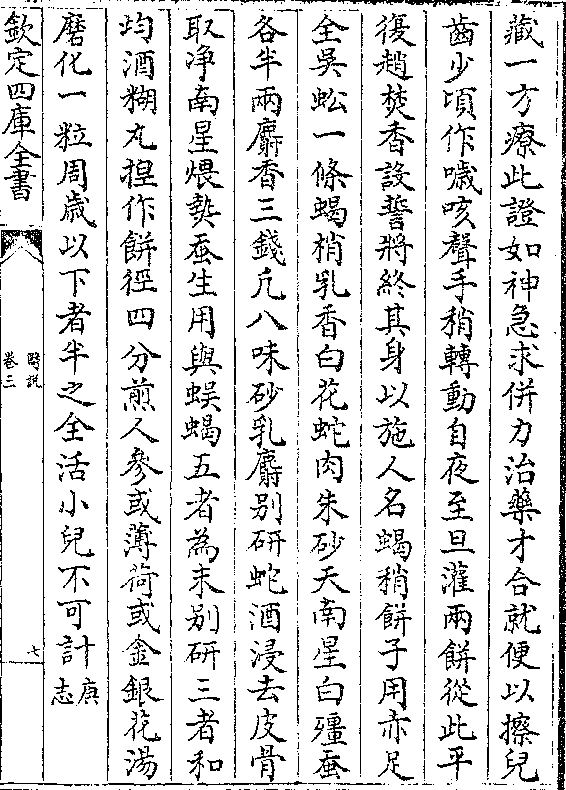 藏一方療此證如神急求併力治藥才合就便以擦兒
齒少頃作嚏咳聲手稍轉動自夜至旦灌兩餅從此平
復趙焚香設誓將終其身以施人名蝎稍餅子用赤足
全吳蚣一條蝎梢乳香白花蛇肉朱砂天南星白殭蚕
各半兩麝香三錢凢八味砂乳麝别研蛇酒浸去皮骨
取净南星煨熟蚕生用與蜈蝎五者為末别研三者和
均酒糊丸揑作餅徑四分煎人參或薄荷或金銀花湯
磨化一粒周歳以下者半之全活小兒不可計庚志
欽定四庫全書
醫説
卷三
七